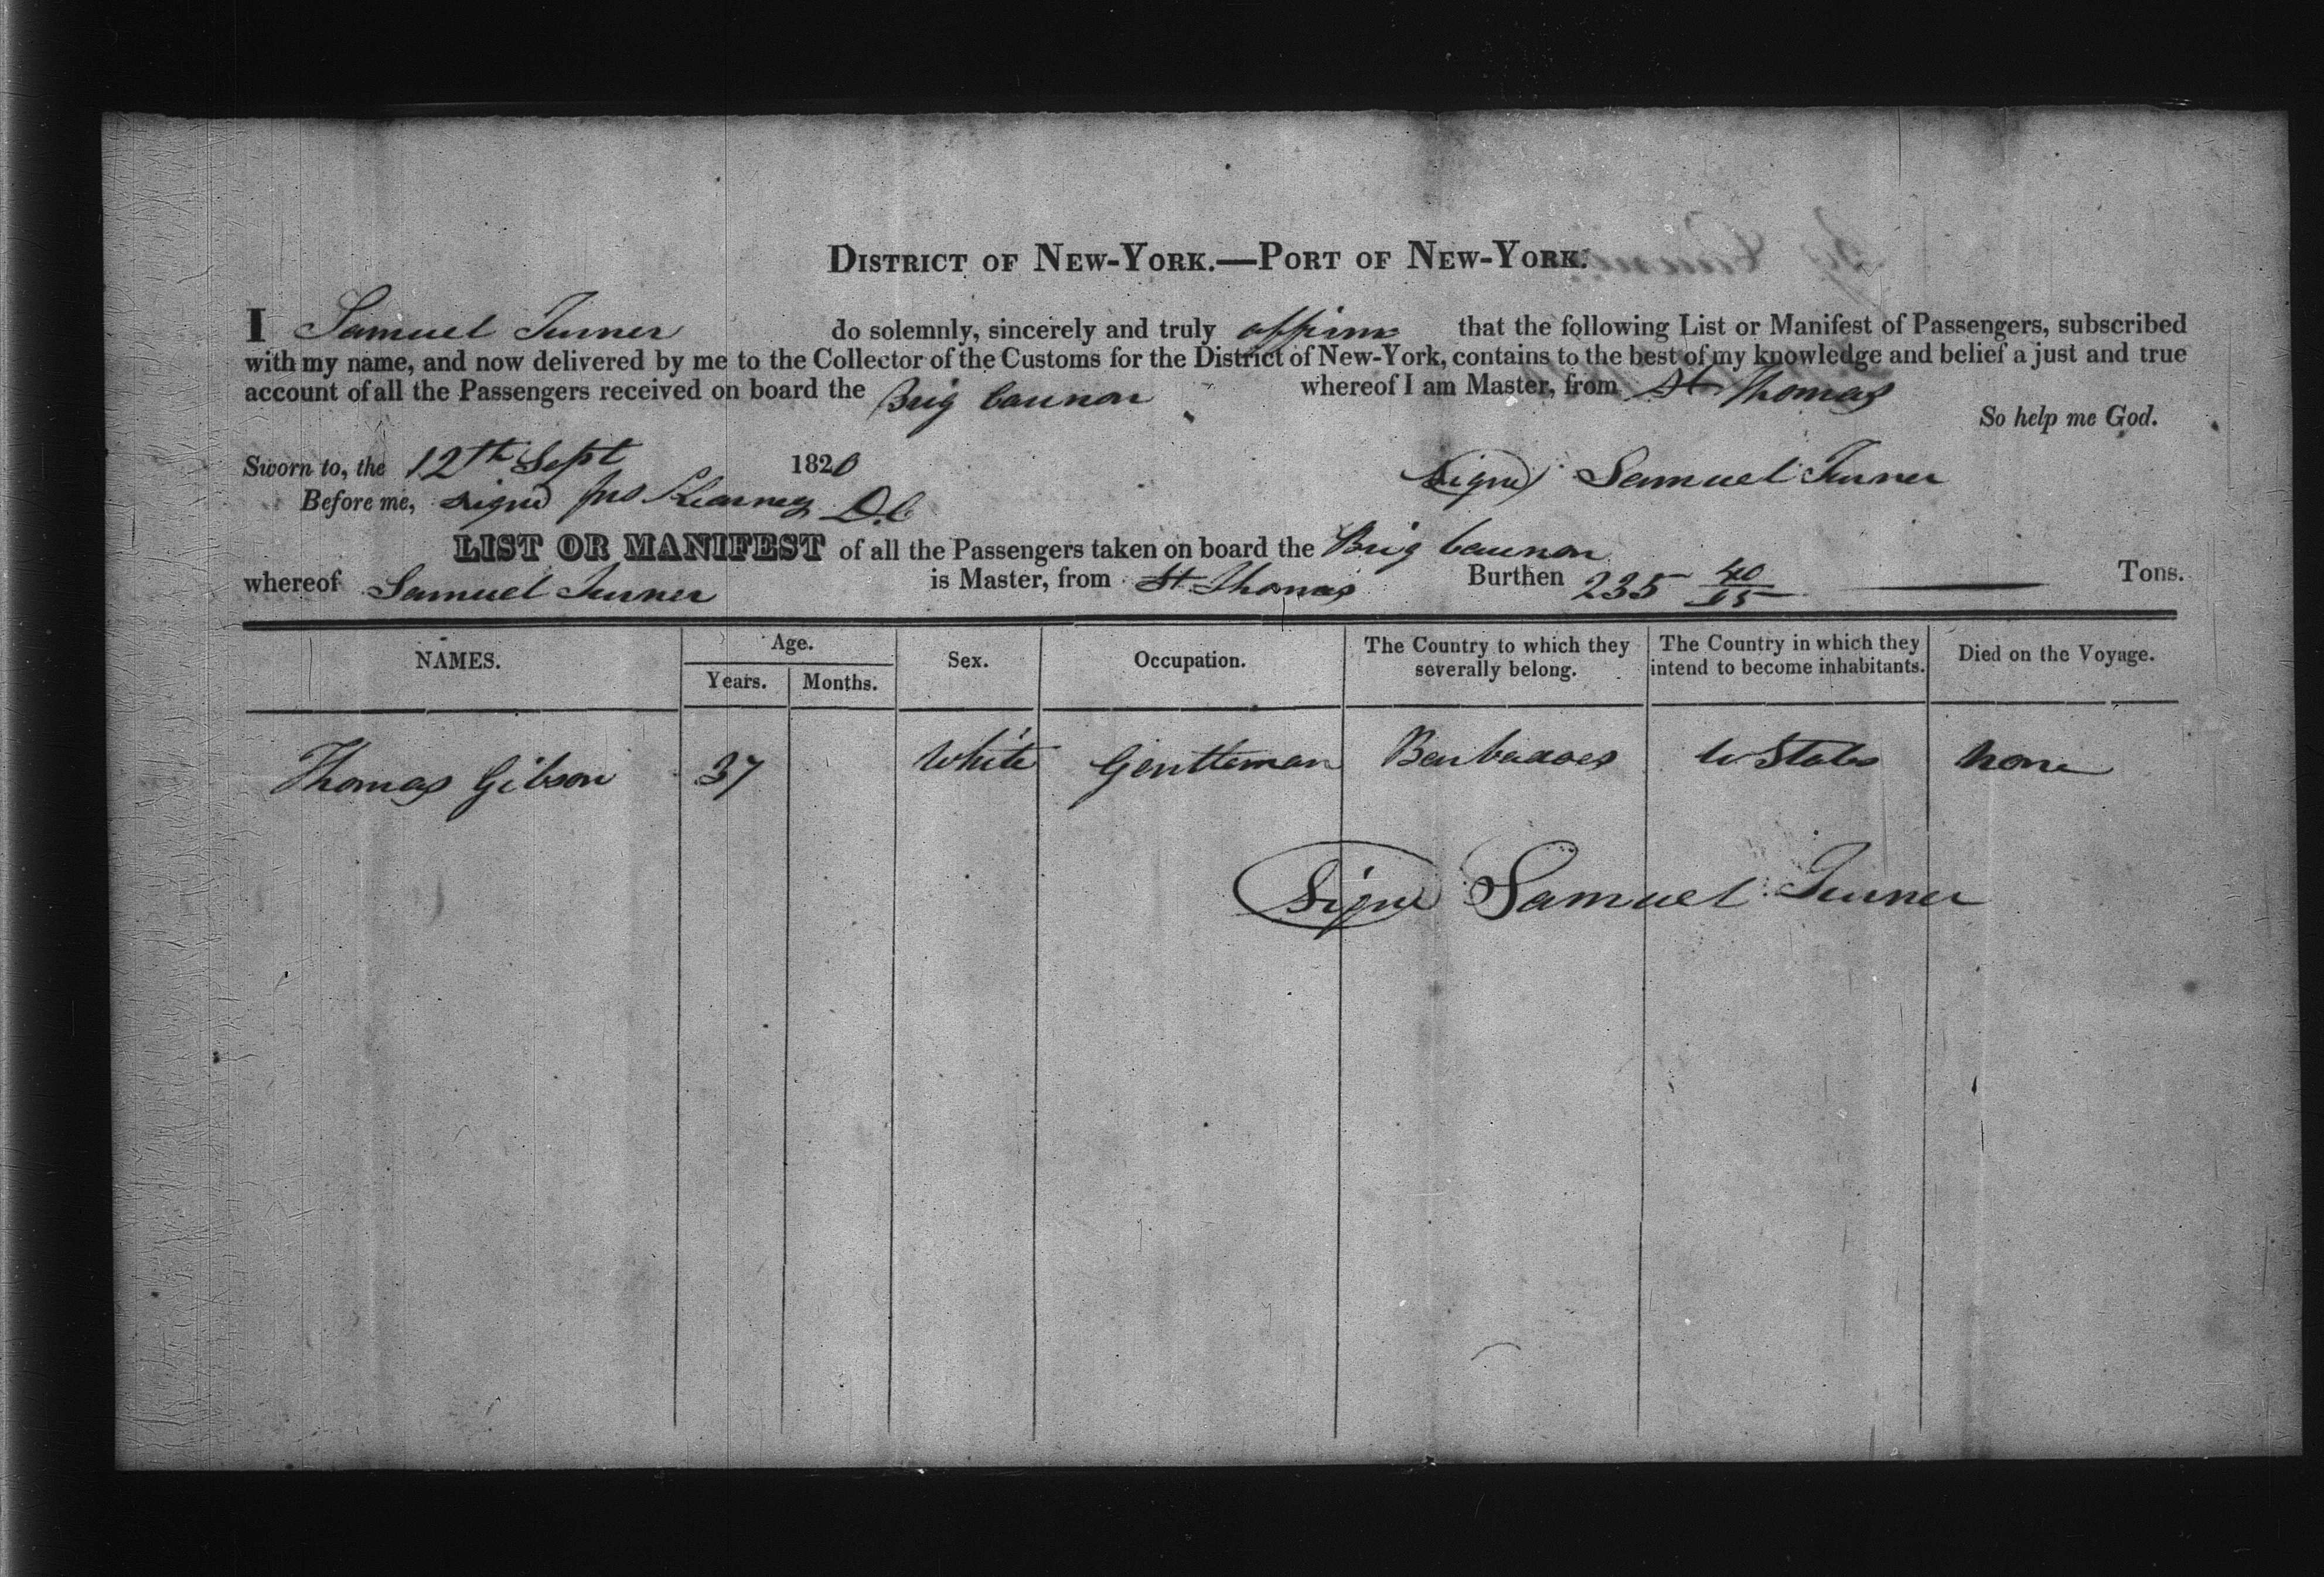 DISTRICT OF NEW-YORK.—PORT OF NEW-YORK.
I Samuel Turner do solemnly, sincerely and truly affirm that the following List or Manifest of Passengers, subscribed
with my name, and now delivered by me to the Collector of the Customs for the District of New-York, contains to the best of my knowledge and belief a just and true
account of all the Passengers received on board the Brig Cannon whereof I am Master, from St Thomas
So help me God.
Sworn to, the 12th Sept 1820 Signd Samuel Turner
Before me, signd Jno Kearney D.C
LIST OR MANIFEST of all the Passengers taken on board the Brig Cannon
whereof Samuel Turner is Master, from St Thomas Burthen 235 40/95 Tons.
NAMES. Age. Years. Months. Sex. Occupation. The Country to which they severally belong. The Country in which they intend to become inhabitants. Died on the Voyage.
Thomas Gibson 37 White Gentleman Barbadoes U States none
Signd Samuel Turner